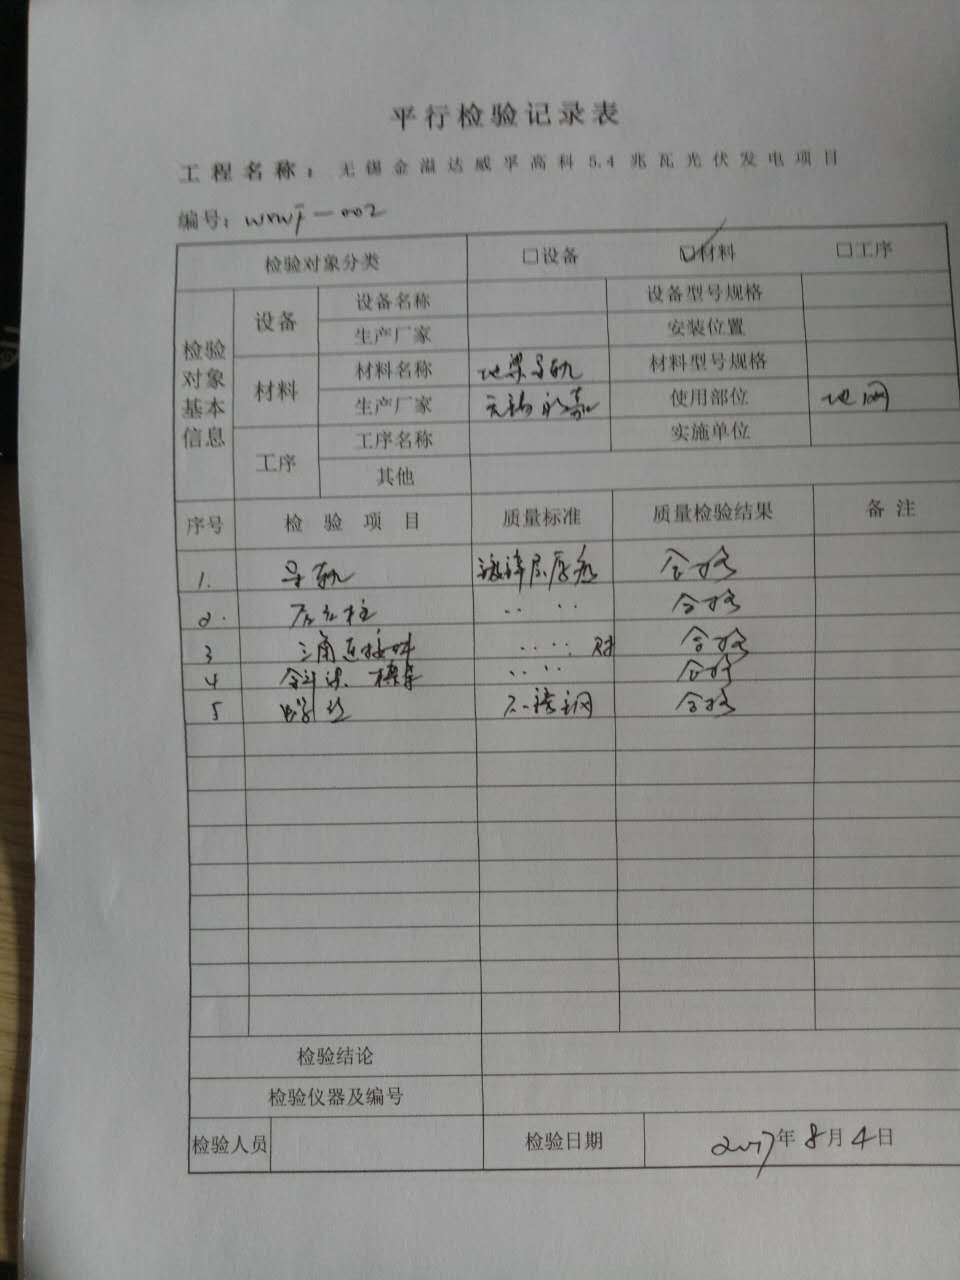 平行检验记录表
工程名称：无锡金溢达威孚高科5.4兆瓦光伏发电项目
编号：wxwf-002
检验对象分类 □设备 ☑材料 □工序
检验对象基本信息 设备 设备名称 设备型号规格
生产厂家 安装位置
材料 材料名称 地梁导轨 材料型号规格
生产厂家 无锡 使用部位 地网
工序 工序名称 实施单位
其他
序号 检验项目 质量标准 质量检验结果 备注
1. 导轨 镀锌层厚 合格
2. 后立柱 ‥ ‥ 合格
3 三角连接 ‥ ‥ 合格
4 斜梁 横梁 ‥ ‥ 合格
5 螺丝 不锈钢 合格
检验结论
检验仪器及编号
检验人员 检验日期 2017年8月4日